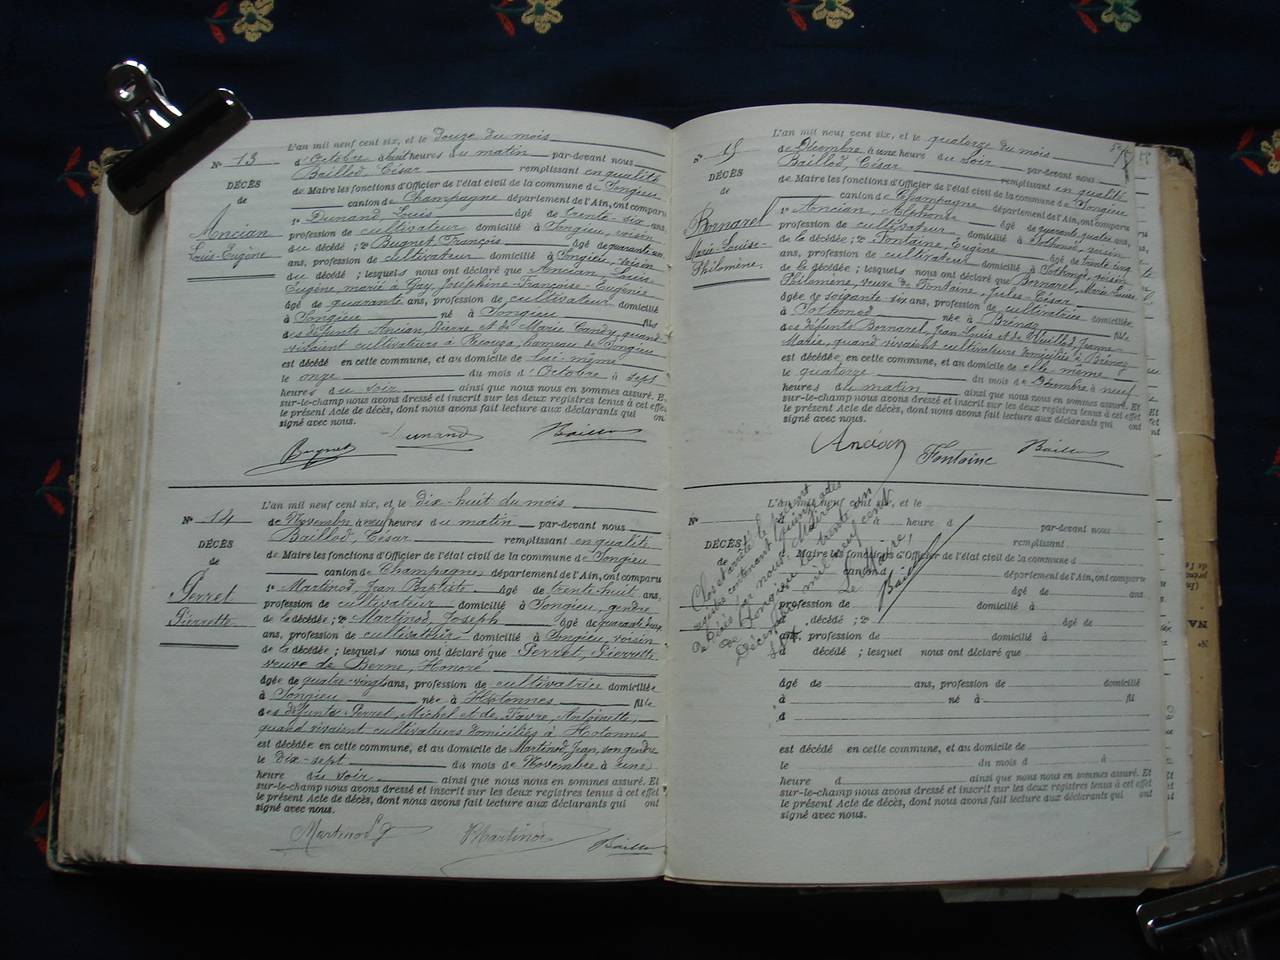 L'an mil neuf cent six, et le douze du mois
N° 13
d'Octobre à huit heures du matin par-devant nous
Baillod, César remplissant en qualité
DÉCÈS
de Maire les fonctions d'Officier de l'état civil de la commune de Songieu
de
canton de Champagne département de l'Ain, ont comparu
Ancian
Louis-Eugène
1° Dunand, Louis âgé de trente-six ans,
profession de cultivateur domicilié à Songieu, voisin
du décédé ; 2° Bugnet, François âgé de quarante-un
ans, profession de cultivateur domicilié à Songieu, voisin
du décédé ; lesquels nous ont déclaré que Ancian, Louis
Eugène, marié à Gay, Joséphine-Françoise-Eugénie
âgé de quarante ans, profession de cultivateur domicilié
à Songieu né à Songieu fils
des défunts Ancian, Pierre et de Marie Candy, quand
vivaient cultivateurs à hameau de Songieu
est décédé en cette commune, et au domicile de lui-même
le onze du mois d'Octobre à sept
heures du soir ainsi que nous nous en sommes assuré. Et
sur-le-champ nous avons dressé et inscrit sur les deux registres tenus à cet effet
le présent Acte de décès, dont nous avons fait lecture aux déclarants qui ont
signé avec nous.
Bugnet Dunand Baillod
L'an mil neuf cent six, et le dix-huit du mois
N° 14
de Novembre à neuf heures du matin par-devant nous
Baillod, César remplissant en qualité
DÉCÈS
de Maire les fonctions d'Officier de l'état civil de la commune de Songieu
de
canton de Champagne, département de l'Ain, ont comparu
Perret
Pierrette
1° Martinod, Jean Baptiste âgé de trente-huit ans,
profession de cultivateur domicilié à Songieu, gendre
de la décédée ; 2° Martinod, Joseph âgé de quarante deux
ans, profession de cultivateur domicilié à Songieu, voisin
de la décédée ; lesquels nous ont déclaré que Perret, Pierrette
veuve de Berne, Honoré
âgée de quatre-vingt ans, profession de cultivatrice domiciliée
à Songieu née à Hotonnes fille
des défunts Perret, Michel et de Favre, Antoinette,
quand vivaient cultivateurs domiciliés à Hotonnes
est décédée en cette commune, et au domicile de Martinod, Jean, son gendre
le dix-sept du mois de Novembre à une
heure du soir ainsi que nous nous en sommes assuré. Et
sur-le-champ nous avons dressé et inscrit sur les deux registres tenus à cet effet
le présent Acte de décès, dont nous avons fait lecture aux déclarants qui ont
signé avec nous.
Martinod J Martinod Baillod
L'an mil neuf cent six, et le quatorze du mois
N° 15
de Décembre à une heure du soir par-devant nous
Baillod, César remplissant en qualité
DÉCÈS
de Maire les fonctions d'Officier de l'état civil de la commune de Songieu
de
canton de Champagne département de l'Ain, ont comparu
Bornarel
Marie-Louise-
Philomène
1° Ancian, Alphonse âgé de quarante quatre ans,
profession de cultivateur domicilié à Sothonod, voisin
de la décédée ; 2° Fontaine, Eugène âgé de trente cinq
ans, profession de cultivateur domicilié à Sothonod, voisin
de la décédée ; lesquels nous ont déclaré que Bornarel, Marie-Louise
Philomène, veuve de Fontaine, Jules-César
âgée de soixante-six ans, profession de cultivatrice domiciliée
à Sothonod née à Brénaz fille
des défunts Bornarel, Jean Louis et de Jeanne-
Marie, quand vivaient cultivateurs domiciliés à Brénaz
est décédée en cette commune, et au domicile de elle même
le quatorze du mois de Décembre à neuf
heures du matin ainsi que nous nous en sommes assuré. Et
sur-le-champ nous avons dressé et inscrit sur les deux registres tenus à cet effet
le présent Acte de décès, dont nous avons fait lecture aux déclarants qui ont
signé avec nous.
Ancian Fontaine Baillod
L'an mil neuf cent six, et le
N° à heure d par-devant nous
remplissant
DÉCÈS
de Maire les fonctions d'Officier de l'état civil de la commune d
de
canton d département de l'Ain, ont comparu
1° âgé de ans
profession de domicilié à
décédé ; 2° âgé de
ans, profession de domicilié à
d décédé ; lesquel nous ont déclaré que
âgé de ans, profession de domicilié
à né à fil
d
est décédé en cette commune, et au domicile de
le du mois d à
heure d ainsi que nous nous en sommes assuré. Et
sur-le-champ nous avons dressé et inscrit sur les deux registres tenus à cet effet
le présent Acte de décès, dont nous avons fait lecture aux déclarants qui ont
signé avec nous.
Clos et arrêté le présent
registre contenant quinze actes
de Décès par nous, Maire
de Songieu le trente un
Décembre mil neuf cent
six.
Le Maire,
Baillod